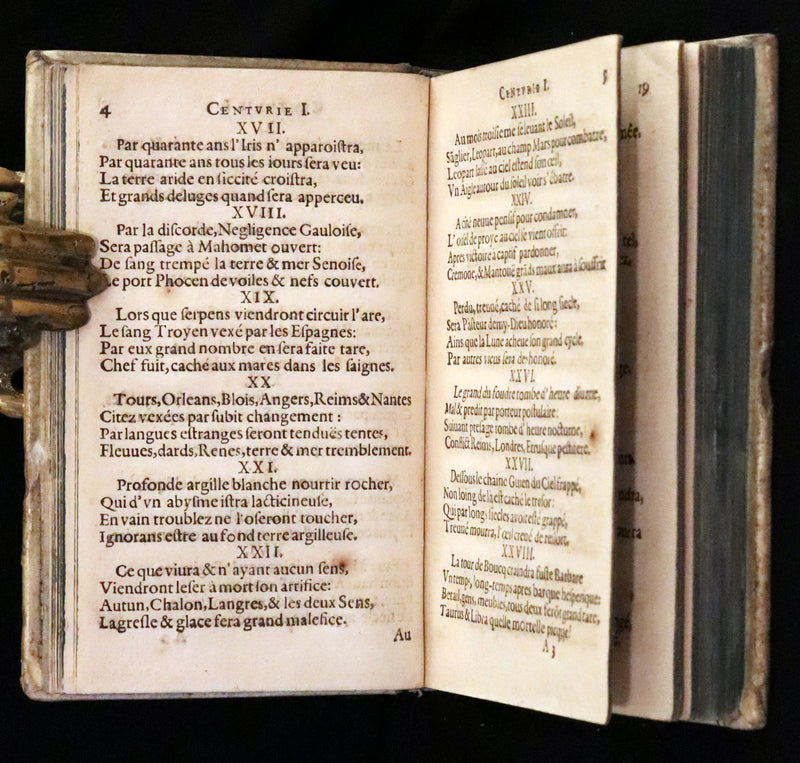 4 CENTVRIE I.
XVII.
Par quarante ans l'Iris n' apparoiſtra,
Par quarante ans tous les iours ſera veu:
La terre aride en ſiccité croiſtra,
Et grands deluges quand ſera apperceu.
XVIII.
Par la diſcorde, Negligence Gauloiſe,
Sera paſſage à Mahomet ouvert:
De ſang trempé la terre & mer Senoiſe,
Le port Phocen de voiles & nefs couvert.
XIX.
Lors que ſerpens viendront circuir l'are,
Le ſang Troyen vexé par les Eſpagnes:
Par eux grand nombre en ſera faite tare,
Chef fuit, caché aux mares dans les ſaignes.
XX
Tours, Orleans, Blois, Angers, Reims & Nantes
Citez vexées par ſubit changement:
Par langues eſtranges ſeront tenduës tentes,
Fleuues, dards, Renes, terre & mer tremblement.
XXI.
Profonde argille blanche nourrir rocher,
Qui d'vn abyſme iſtra lacticineuſe,
En vain troublez ne l'oſeront toucher,
Ignorans eſtre au fond terre argilleuſe.
XXII.
Ce que viura & n'ayant aucun ſens,
Viendront leſer à mort ſon artifice:
Autun, Chalon, Langres, & les deux Sens,
La greſle & glace fera grand malefice.
Au
CENTVRIE I. 5
XXIII.
Au mois troiſieme ſe leuant le Soleil,
Sãglier, Leopart, au champ Mars pour combatre,
Leopart laſſé au ciel eſtend ſon œil,
Vn Aigle autour du ſoleil voit s'ébatre.
XXIV.
A cité neuue penſif pour condamner,
L'oiſel de proye au ciel ſe vient offrir:
Apres victoire a captif pardonner,
Cremone, & Mantoüe grãds maux aura à ſouffrir
XXV.
Perdu, treuué, caché de ſi long ſiecle,
Sera Paſteur demy-Dieu honoré:
Ains que la Lune acheue ſon grand cycle,
Par autres ſera deshonoré.
XXVI.
Le grand du foudre tombe d'heure diurne,
Mal & predit par porteur poſtulaire:
Suiuant preſage tombe d'heure nocturne,
Conflict Reims, Londres, Etruſque peſtifere.
XXVII.
Deſſous le chaine Guien du Ciel frappé,
Non loing de là eſt caché le treſor:
Qui par longs ſiecles avoit eſté grappé,
Treuué mourra, l'œil creué de reſſort.
XXVIII.
La tour de Boucq craindra fuſte Barbare
Vn temps, long-temps apres barque heſperique:
Betail, gens, meubles, tous deux ferõt grand tare,
Taurus & Libra quelle mortelle picque!
A 3
19